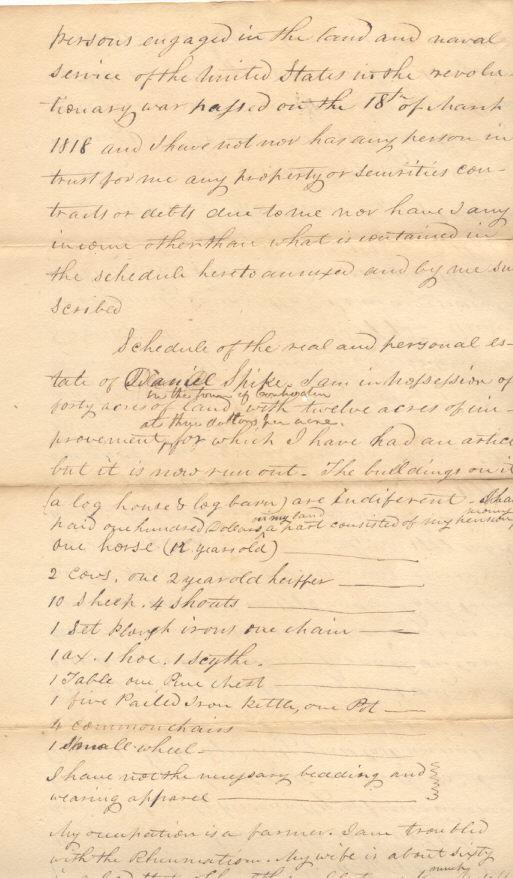 persons engaged in the land and naval
service of the United States in the revolu-
tionary war passed on the 18th of March
1818 and I have not nor has any person in
trust for me any property or securities con-
tracts or debts due to me nor have I any
income other than what is contained in
the schedule hereto annexed and by me su
scribed
Schedule of the real and personal es-
tate of Daniel Spike. I am in possession of
in the town of
forty acres of land, with twelve acres of im-
at three dollars per acre.
provement, for which I have had an artic
but it is now run out. The buildings on it
(a log house & log barn) are indiferent - I ha
on my land
paid one hundred Dollars a part consisted of my pension
money
one horse (12 years old)
2 cows, one 2 year old heiffer
10 Sheep. 4 Shoats
1 Set Plough irons one chain
1 ax. 1 hoe. 1 Scythe.
1 Table one Pine chest
1 five Pailed Iron Kettle, one Pot
4 common chairs
1 Small wheel
I have not the necessary beading and
wearing apparel
My occupation is a farmer. I am troubled
with the Rheumatism. My wife is about sixty